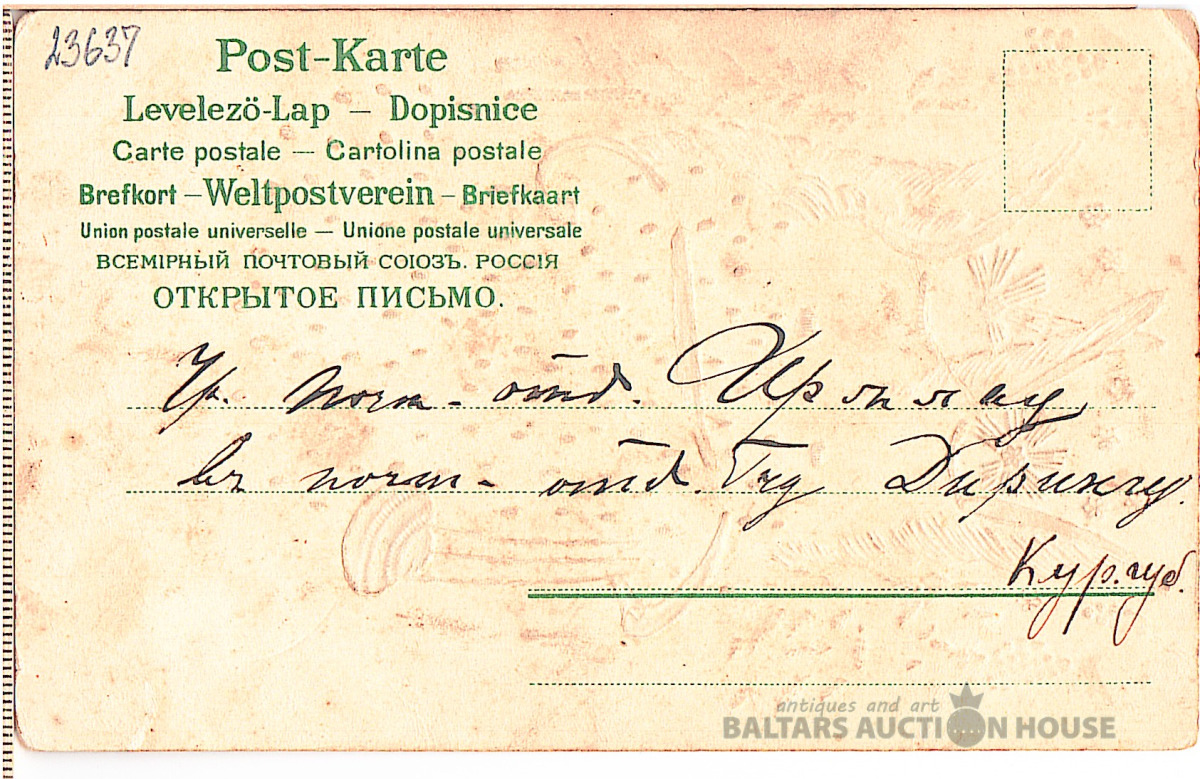 23637
Post-Karte
Levelező-Lap — Dopisnice
Carte postale — Cartolina postale
Brefkort – Weltpostverein – Briefkaart
Union postale universelle — Unione postale universale
ВСЕМІРНЫЙ ПОЧТОВЫЙ СОЮЗЪ. РОССІЯ
ОТКРЫТОЕ ПИСЬМО.
почт- отд.
въ почт- отд. Дирингу.
Кур. губ.
antiques and art
BALTARS AUCTION HOUSE